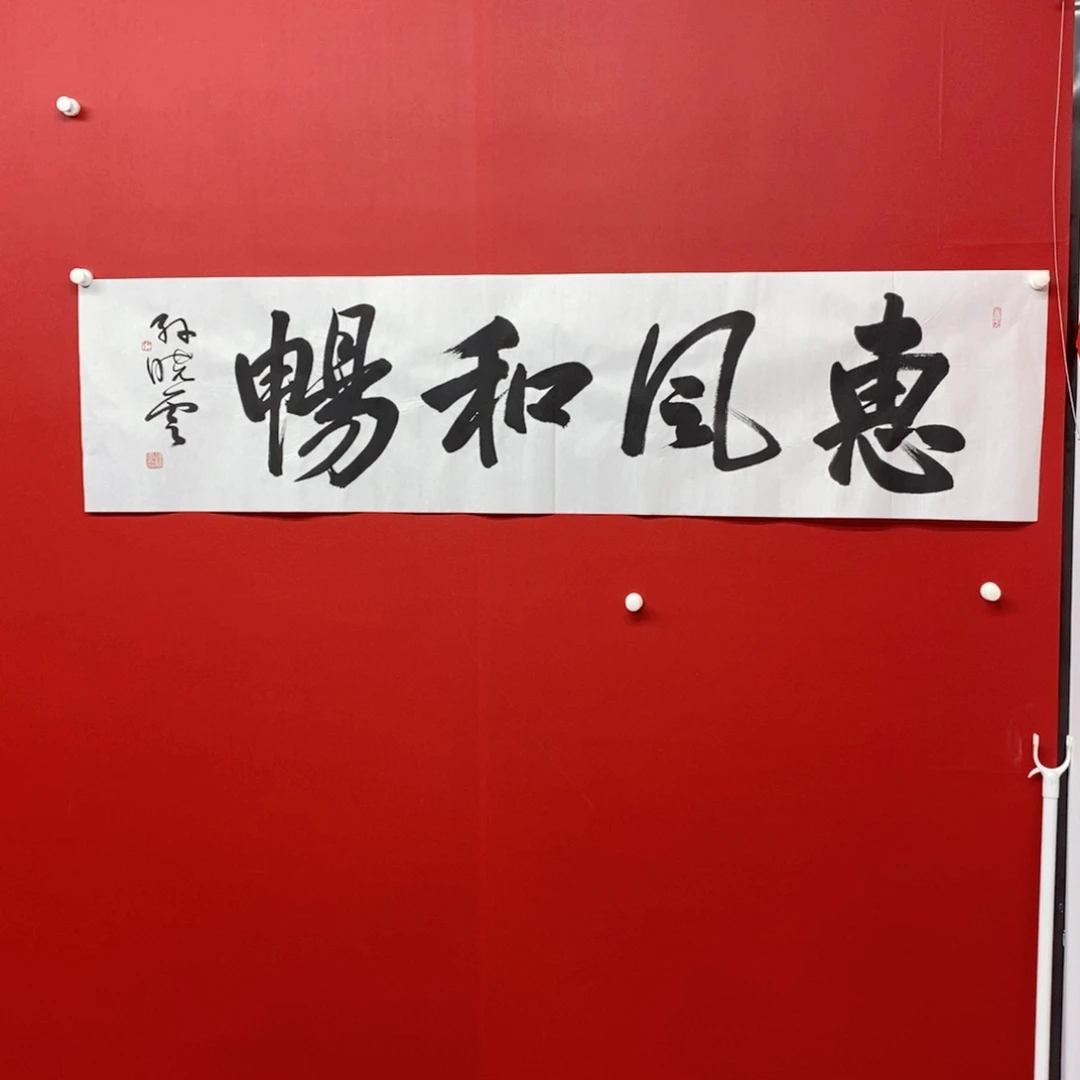 惠風和暢
孙晓雲